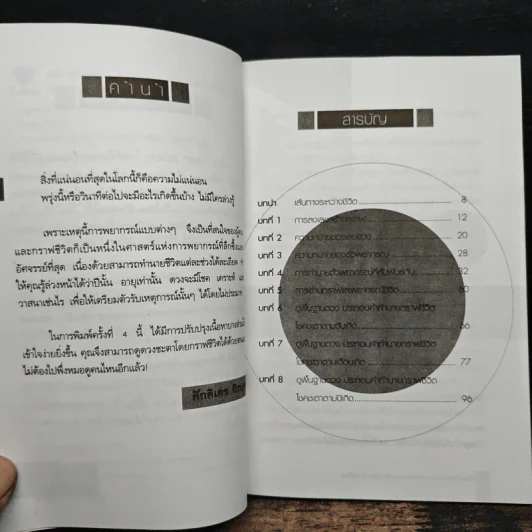 คำนำ
สิ่งที่แน่นอนที่สุดในโลกนี้ก็คือความไม่แน่นอน
พรุ่งนี้หรือวินาทีต่อไปจะมีอะไรเกิดขึ้นบ้าง ไม่มีใครล่วงรู้
เพราะเหตุนี้การพยากรณ์แบบต่างๆ จึงเป็นที่สนใจของผู้คน
และกราฟชีวิตก็เป็นหนึ่งในศาสตร์แห่งการพยากรณ์ที่ลึกซึ้งและ
อัศจรรย์ที่สุด เนื่องด้วยสามารถทำนายชีวิตแต่ละช่วงได้ละเอียด
ให้คุณรู้ล่วงหน้าได้ว่าปีนั้น อายุเท่านั้น ดวงจะมีโชค เคราะห์ และ
วาสนาเช่นไร เพื่อให้เตรียมตัวรับเหตุการณ์นั้นๆ ได้โดยไม่ประมาท
ในการพิมพ์ครั้งที่ 4 นี้ ได้มีการปรับปรุงเนื้อหาบางส่วนให้
เข้าใจง่ายยิ่งขึ้น คุณจึงสามารถดูดวงชะตาโดยกราฟชีวิตได้ด้วยตนเอง
ไม่ต้องไปพึ่งหมอดูคนไหนอีกแล้ว!
ศักดิเดช
สารบัญ
บทนำ เส้นทางระหว่างชีวิต 8
บทที่ 1 การลงเลขสร้างกราฟ 12
บทที่ 2 ความหมายของ 20
บทที่ 3 ความหมายของตัวพยากรณ์ 28
บทที่ 4 การทำนายตัวพยากรณ์ที่สัมพันธ์กัน 32
บทที่ 5 การอ่านกราฟและพยากรณ์ชีวิต 60
บทที่ 6 ดูพื้นฐานดวง ประกอบคำทำนายกราฟชีวิต
โชคชะตาตามวันเกิด 66
บทที่ 7 ดูพื้นฐานดวง ประกอบคำทำนายกราฟชีวิต
โชคชะตาตามเดือนเกิด 77
บทที่ 8 ดูพื้นฐานดวง ประกอบคำทำนายกราฟชีวิต
โชคชะตาตามปีเกิด 96